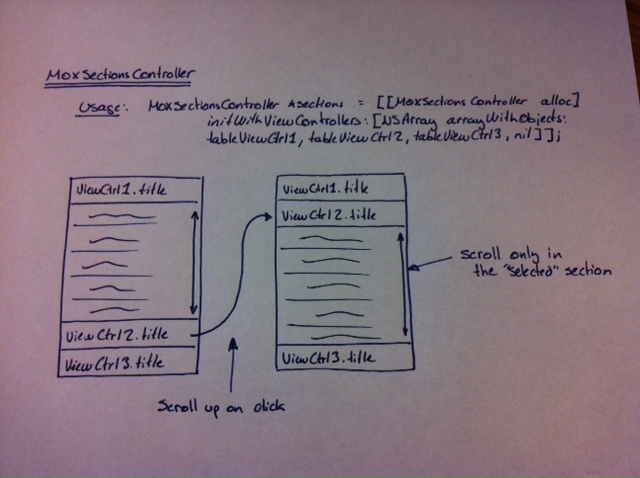 MoxSectionsController
Usage: MoxSectionsController *sections = [[MoxSectionsController alloc]
initWithViewControllers: [NSArray arrayWithObjects:
tableViewCtrl1, tableViewCtrl2, tableViewCtrl3, nil]];
ViewCtrl1.title
ViewCtrl2.title
ViewCtrl3.title
ViewCtrl1.title
ViewCtrl2.title
ViewCtrl3.title
scroll only in
the "selected" section
Scroll up on click